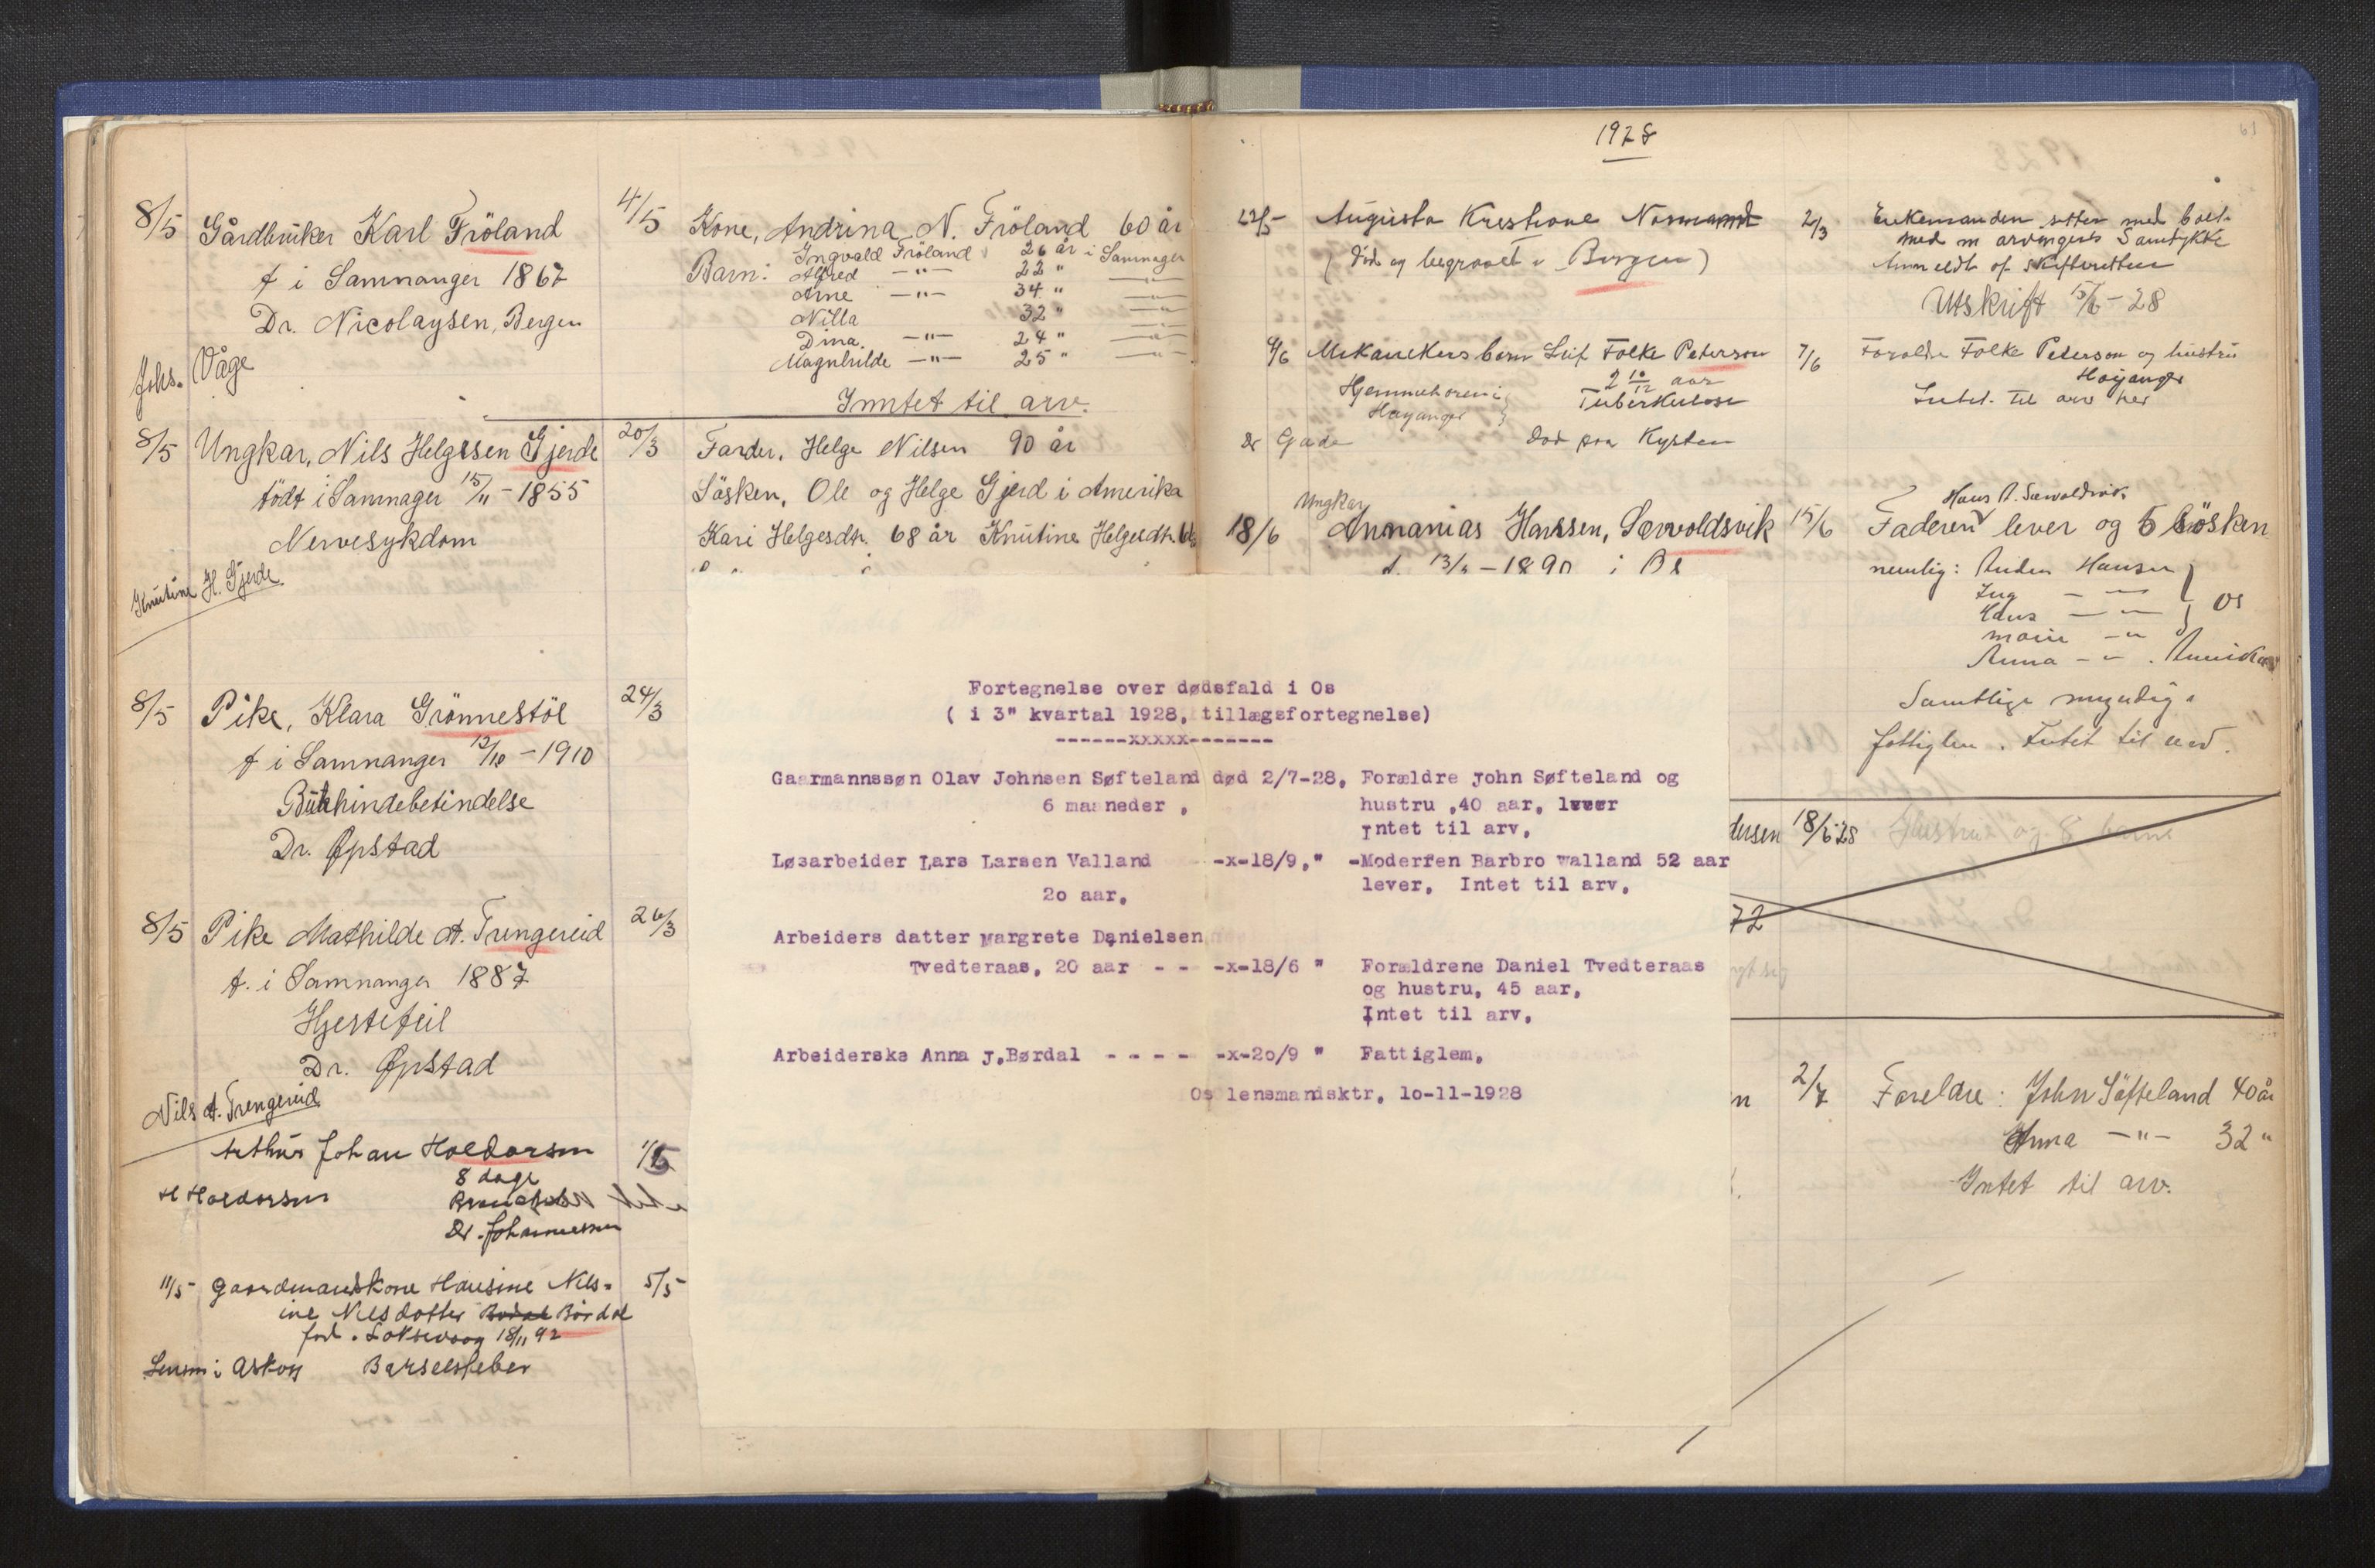 8/5 Gårdbruker Karl Fröland 4/5 Kone, Andrina N. Fröland 60 år
f i Samnanger 1867
Dr. Nicolaysen, Bergen
Johs. Våge
Barn: Ingvald Fröland 26 år i Samnager
Alfred —"— 22 "
Arne —"— 34 "
Nilla 32 "
Dina. —"— 24 "
Magnhilde —"— 25 "
Inntet til arv.
8/5 Ungkar, Nils Helgesen Gjerde 20/3 Farder, Helge Nilsen 90 år
födt i Samnager 15/11 - 1855
Nervesykdom
Knutine H. Gjerde.
Sösken, Ole og Helge Gjerd i Amerika
Kari Helgesdtr. 68 år Knutine Helgesdtr.
8/5 Pike, Klara Grönnestöl 24/3
f i Samnanger 12/10 - 1910
Bukhindebetindelse
Dr. Øpstad
8/5 Pike Mathilde A. Trengereid 26/3
f. i Samnanger 1887
Hjertefeil
Dr. Øpstad
Nils A. Trengereid
Arthur Johan Holdorsen
8 dage
H Holdorsen
Dr. Johannessen
11/5 Gaardmandskone Hansine Nils=
ine Nilsdotter Børdal 5/5
fød. Loksevaag 18/11 92
Lensm i Askøy Barselsfeber
1928
61
22/5 Augusta Krestiane
(Død og begravet i Bergen)
2/3 Enkemanden sitter med boet
med m arvingers Samtykke
Anmeldt af skifteretten
Utskrift 15/6 - 28
9/6 Mekanikers barn Leif Folke Peterson 7/6
2 10/12 aar
Hjemmehørende i
Høyanger
Tuberkulose
Dr Gade død paa Kysten
Foreldre Folke Peterson og hustru
Høyanger
Intet til arv her
Ungkar
18/6 Annanias Hanssen, Sævoldsvik 15/6
f. 13/ - 1890 i
Hans A. Sævoldsvik
Faderen lever og 5 Sösken
nemlig: Hansen
Inga — —
Hans — — Os
— "
Anna — — . Amerika
Samtlige myndige
fattiglem. Intet til arv.
Fortegnelse over dødsfald i Os
( i 3" kvartal 1928, tillægsfortegnelse)
------xxxxx-------
Gaarmannssøn Olav Johnsen Søfteland død 2/7-28, Forældre John Søfteland og
6 maaneder , hustru ,40 aar, lever
Intet til arv,
Løsarbeider Lars Larsen Valland -x-18/9," -Moderfen Barbro Walland 52 aar
20 aar, lever, Intet til arv,
Arbeiders datter Margrete Danielsen
Tvedteraas, 20 aar - - -x-18/6 " Forældrene Daniel Tvedteraas
og hustru, 45 aar,
Intet til arv,
Arbeiderske Anna J,Børdal - - - - -x-20/9 " Fattiglem,
Os lensmandsktr, 10-11-1928
dersen 18/5 28 Hustru og 8 barn
72
2/7 Foreldre: John Söfteland 40 år
Anna —"— 32 "
Intet til arv.